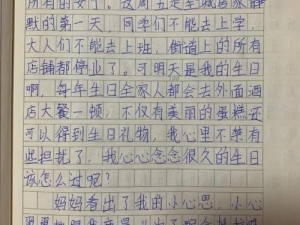 所有的安宁。这周五是全城居家静
默的第一天，同学们不能去上学，
大人们不能去上班，街道上的所有
店铺都停业了。可明天是我的生日
啊，每年生日全家人都会去外面酒
店大餐一顿，不仅有美丽的蛋糕还
可以得到生日礼物，我心里不禁有
些担忧了，我心心念念很久的生日
该怎么过呢？
妈妈看出了我的小心思，小心